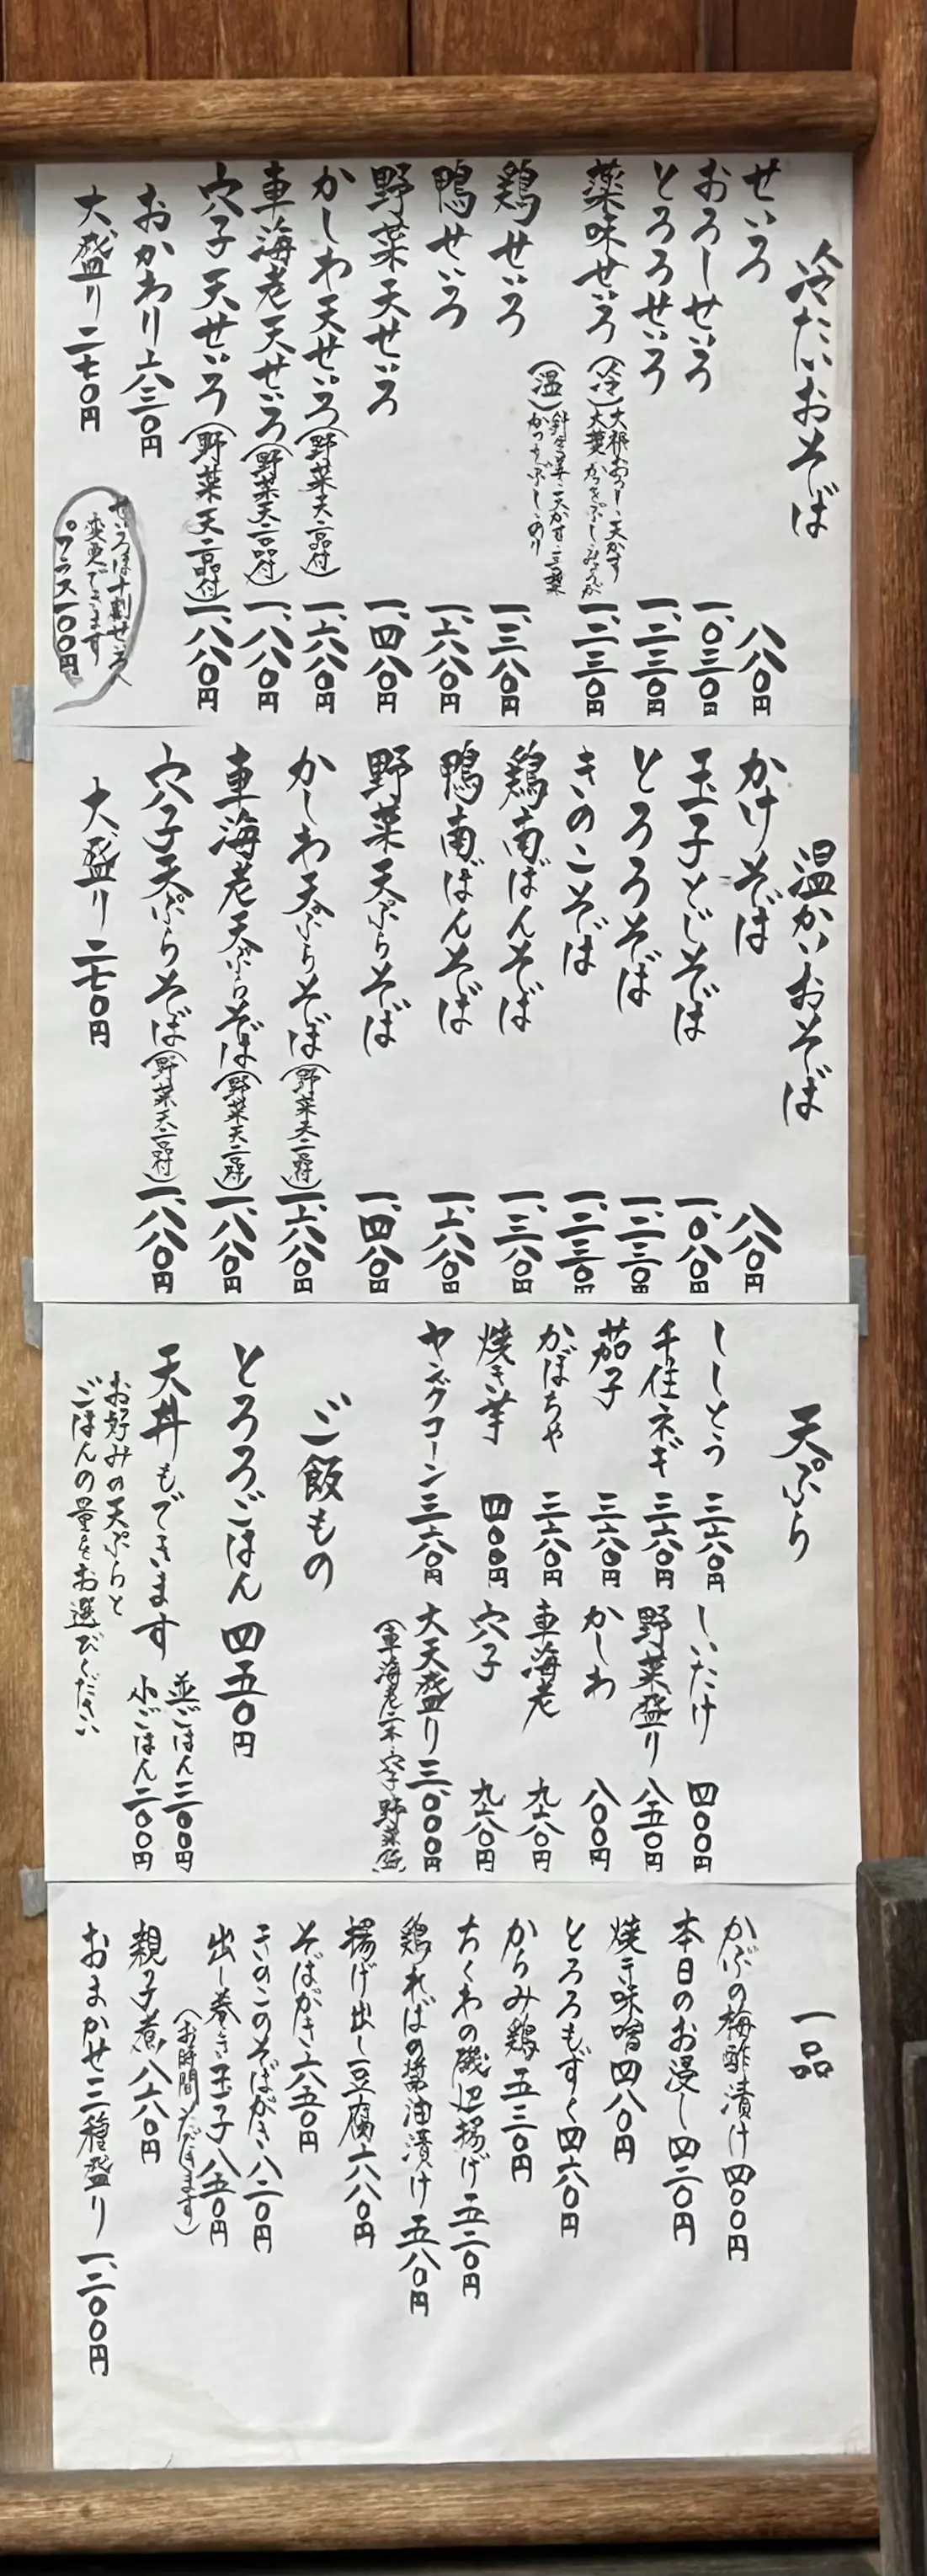 冷たいおそば
せいろ 八八〇円
おろしせいろ 一、〇三〇円
とろろせいろ 一、二三〇円
薬味せいろ 一、二三〇円
(冷)大根おろし、天かす
大葉、かつおぶし、みょうが
(温)針生姜、天かす、三つ葉
かつおぶし、のり
鶏せいろ 一、三八〇円
鴨せいろ 一、六八〇円
野菜天せいろ 一、四八〇円
かしわ天せいろ(野菜天二品付) 一、六八〇円
車海老天せいろ(野菜天二品付) 一、八八〇円
穴子天せいろ(野菜天二品付) 一、八八〇円
おかわり 六三〇円
大盛り 二七〇円
せいろは十割せいろへ
変更できます
プラス一〇〇円
温かいおそば
かけそば 八八〇円
玉子とじそば 一、〇八〇円
とろろそば 一、二三〇円
きのこそば 一、二三〇円
鶏南ばんそば 一、三八〇円
鴨南ばんそば 一、六八〇円
野菜天ぷらそば 一、四八〇円
かしわ天ぷらそば(野菜天二品付) 一、六八〇円
車海老天ぷらそば(野菜天二品付) 一、八八〇円
穴子天ぷらそば(野菜天二品付) 一、八八〇円
大盛り 二七〇円
天ぷら
ししとう 三六〇円
千住ネギ 三六〇円
茄子 三六〇円
かぼちゃ 三六〇円
焼き芋 四〇〇円
ヤングコーン 三六〇円
しいたけ 四〇〇円
野菜盛り 八五〇円
かしわ 八〇〇円
車海老 九六〇円
穴子 九六〇円
大天盛り 三、〇〇〇円
ご飯もの
とろろごはん 四五〇円
天丼もできます 並ごはん三〇〇円
小ごはん二〇〇円
お好みの天ぷらと
ごはんの量をお選びください
一品
かぶの梅酢漬け 四〇〇円
本日のお浸し 四二〇円
焼き味噌 四八〇円
とろろもずく 四六〇円
からみ鶏 五三〇円
ちくわの磯辺揚げ 五二〇円
鶏ればの醤油漬け 五八〇円
揚げ出し豆腐 六八〇円
そばがき 六五〇円
きのこのそばがき 八二〇円
出し巻き玉子 八五〇円
(お時間いただきます)
親子煮 八六〇円
おまかせ三種盛り 一、二〇〇円